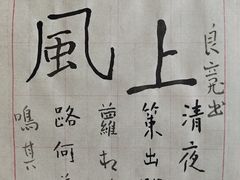 良出
上
風
清夜
策出
蘿
路何
鳴其